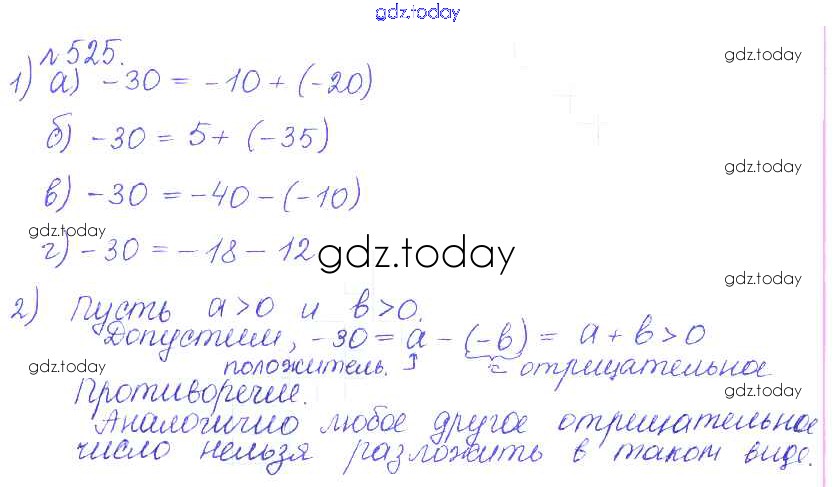 gdz.today
№525. gdz.today
1) а) -30 = -10 + (-20)
б) -30 = 5 + (-35)
gdz.today
в) -30 = -40 - (-10)
gdz.today
г) -30 = -18 - 12 gdz.today
gdz.today
2) Пусть a>0 и b>0.
Допустим, -30 = a - (-b) = a + b > 0
gdz.today положитель. отрицательное
Противоречие. gdz.today
Аналогично любое другое отрицательное
число нельзя разложить в таком виде.
gdz.today gdz.today